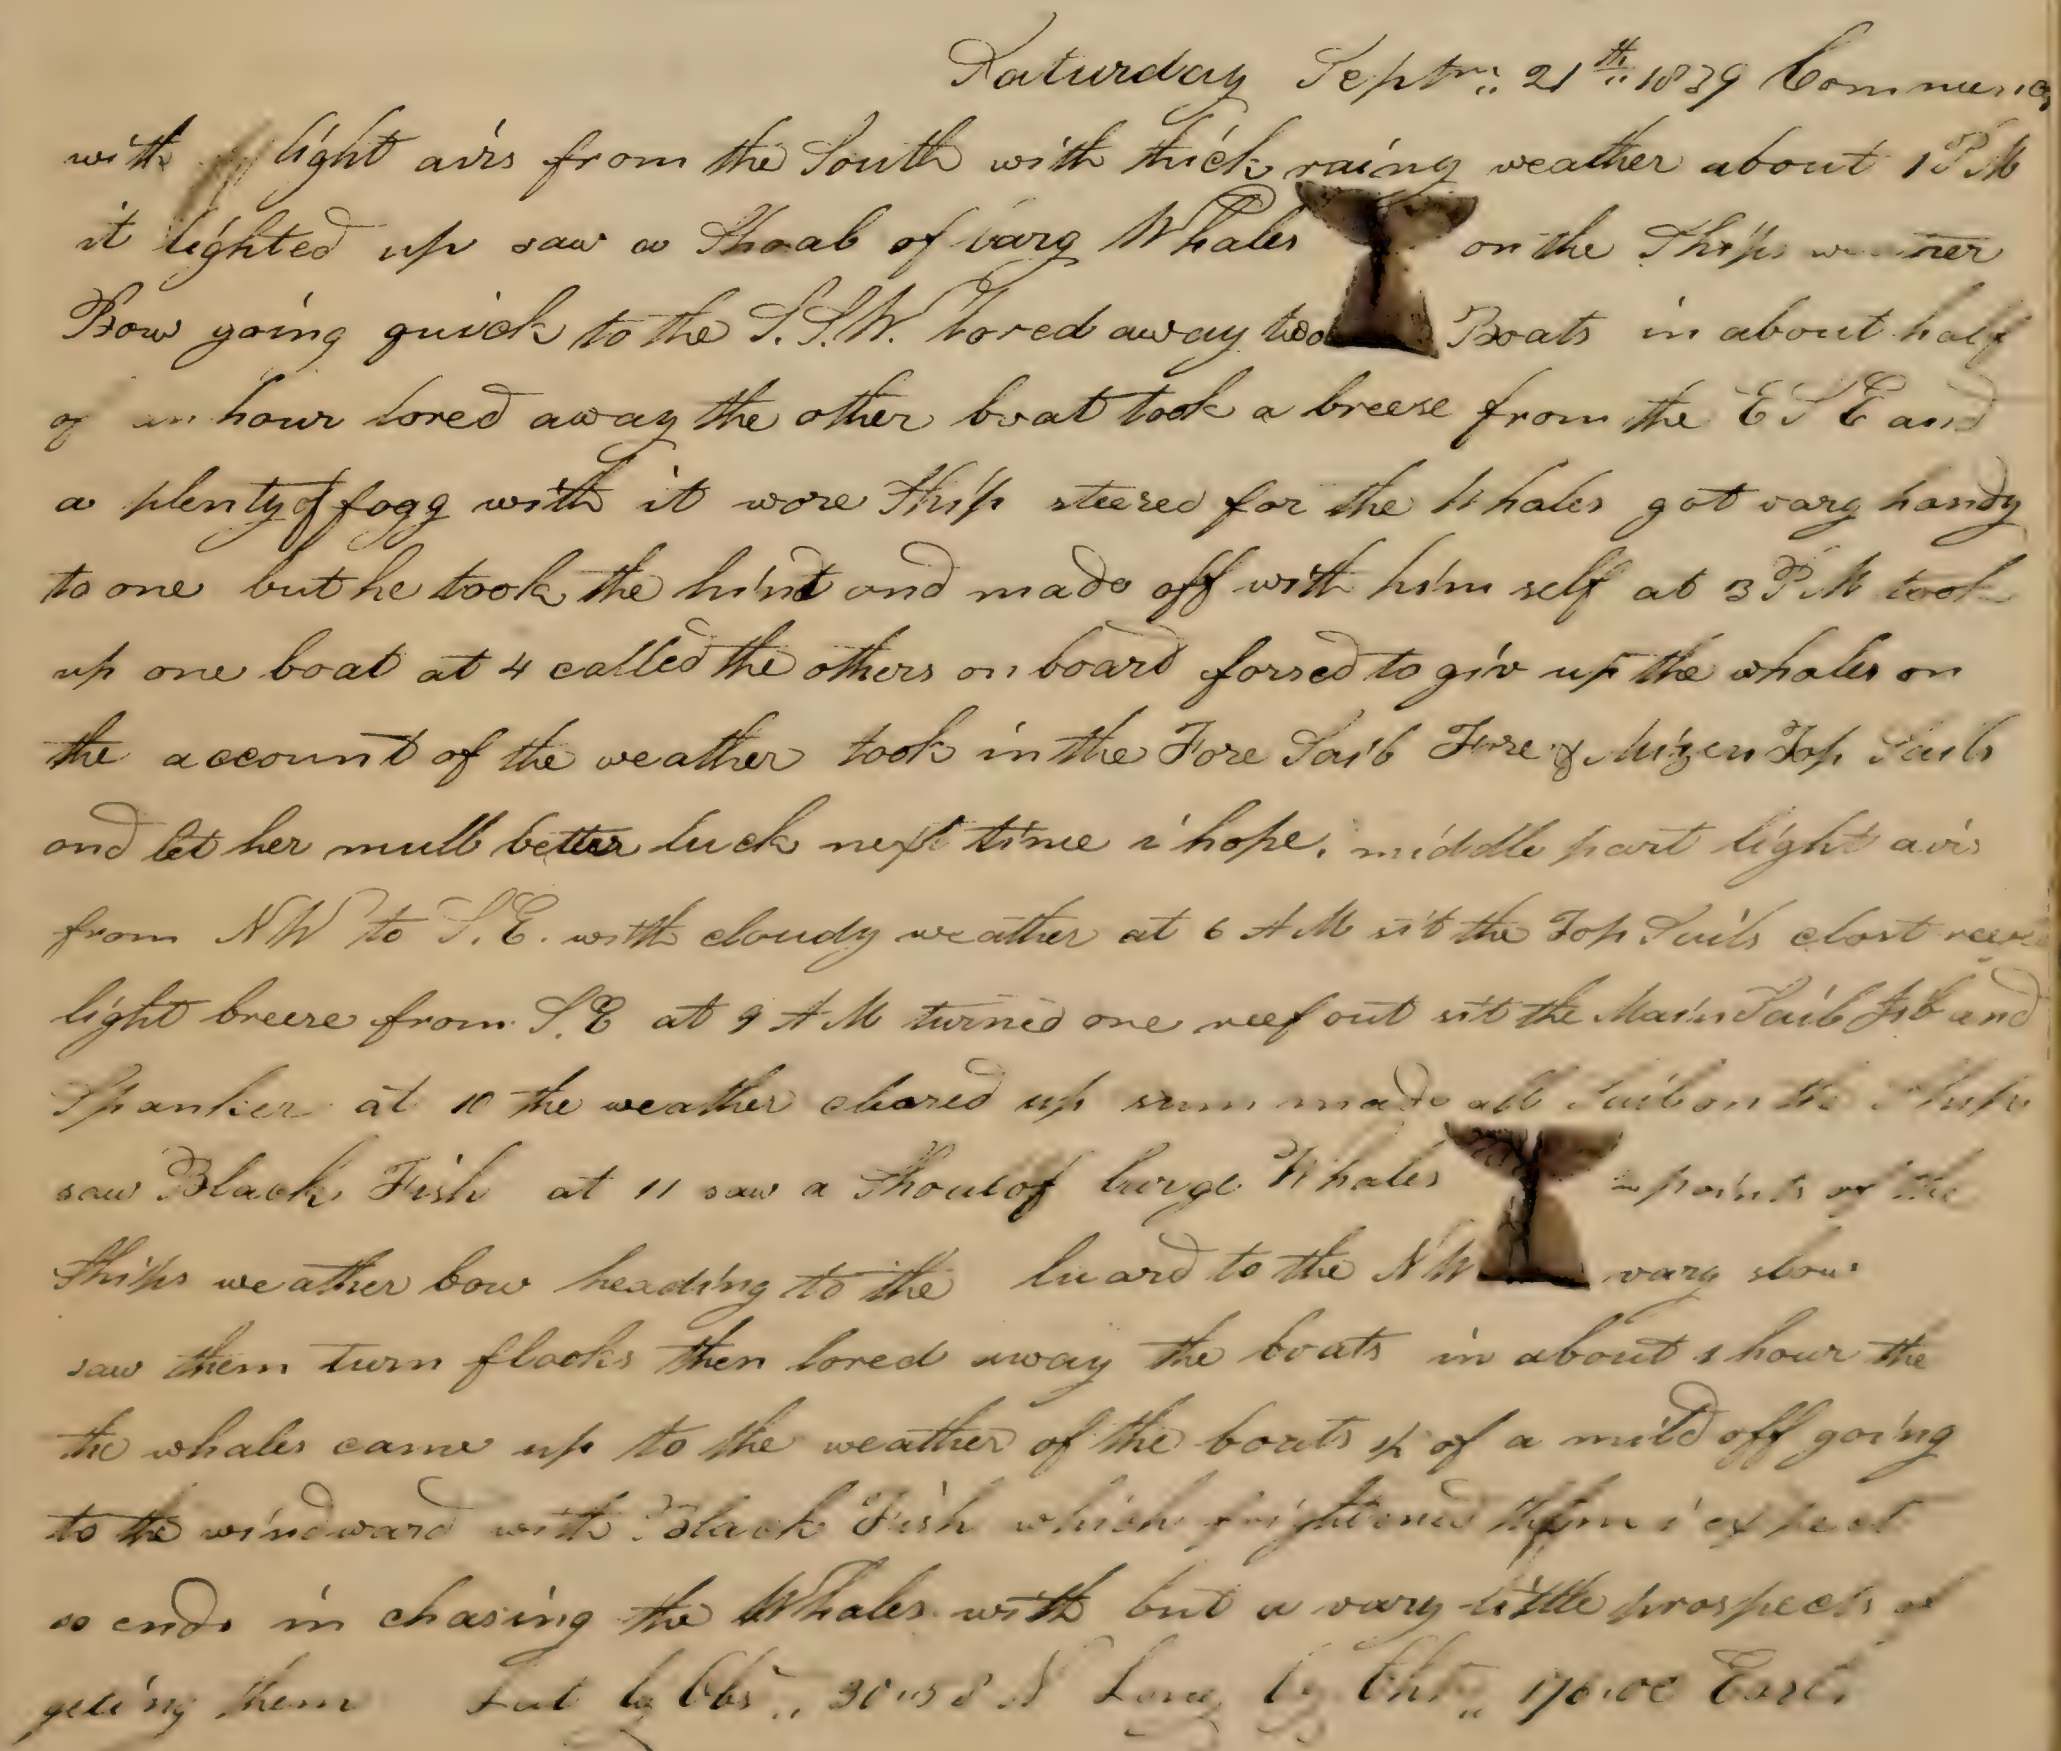 Saturday Septm 21th 1839 Commences
with light airs from the South with thick raing weather about 1 PM
it lighted up saw a Shoal of larg Whales on the Ships weather
Bow going quick to the S.S.W. lored away two Boats in about half
of an hour lored away the other boat took a breese from the E S E and
a plenty of fogg with it wore Ship steered for the Whales got varg handy
to one but he took the hint and made off with him self at 3 PM took
up one boat at 4 called the others on board forsed to giv up the whales on
the account of the weather took in the Fore Sail Fore & Mizen Top Sails
and let her mull better luck next time i hope. middle part light airs
from NW to S.E. with cloudy weather at 6 AM sit the Top Sails clost
light breese from S.E at 9 AM turned one reef out sit the Main Sail Jib and
Spanker at 10 the weather cleared up sum made all Sail on the Ship
saw Black Fish at 11 saw a Shoal of large Whales points of the
Ships weather bow heading to the luard to the NW vary slow
saw them turn flooks then lored away the boats in about 1 hour the
the whales came up to the weather of the boats 1/2 of a mild off going
to the windward with Black Fish which frightened them i expect
so ends in chasing the Whales with but a vary little prospects of
geting them Lat by Obs 30..58 N Long by Chr 176.00 East